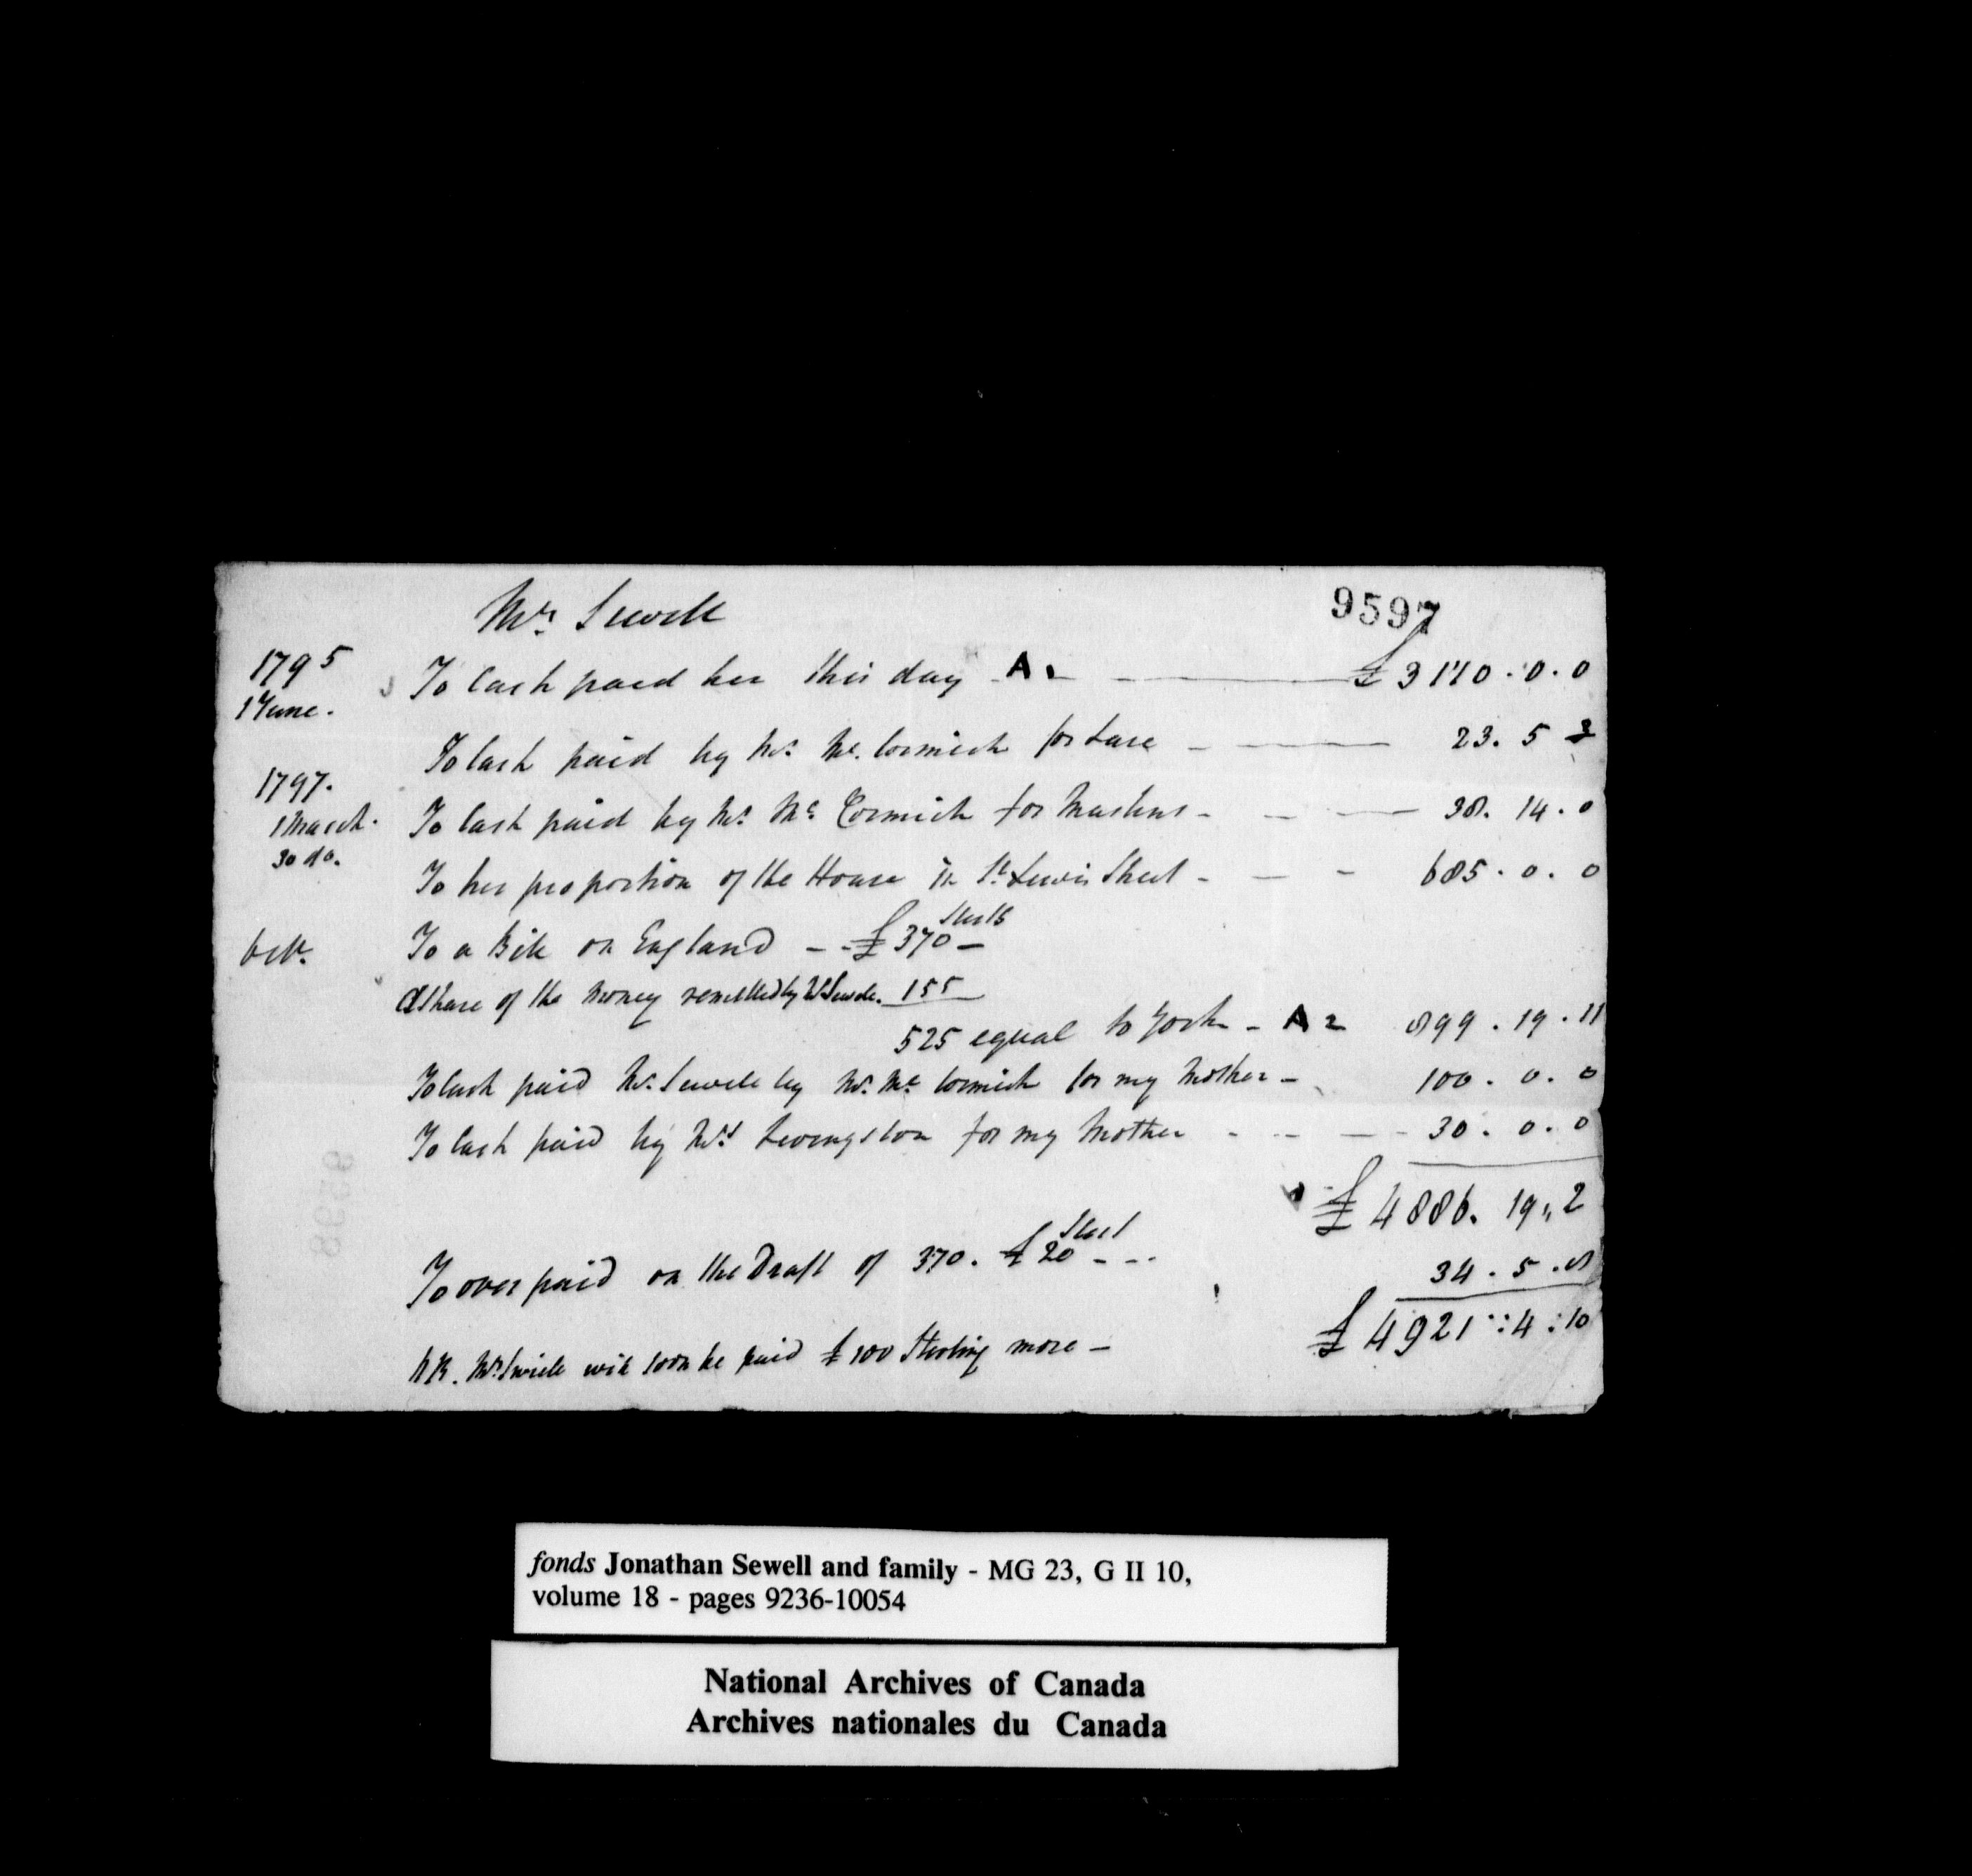 9597
Mrs. Sewell
1795
1 June.
To Cash paid her this day A. £3110.0.0
To Cash paid by Mr. Mc. Cormick for Lace 23.5 3
1797.
1 March.
To Cash paid by Mr. Mc Cormick for Muslins 38.14.0
30 do.
To her proportion of the House in St. Lewis Street 685.0.0
Octr.
To a Bill on England £370 Sterlg
& Share of the Money remitted by W Sewell. 155
525 equal to York - A 2 899.19.11
To Cash paid Mr. Sewell by Mr. Mc Cormick for my Mother 100.0.0
To Cash paid by Mrs Livingston for my Mother 30.0.0
£4886.19,,2
To over paid on the Draft of 370. £20 Sterl 34.5.8
£4921::4:10
NB. Mrs. Sewell will soon be paid £100 Sterling more -
9598
fonds Jonathan Sewell and family - MG 23, G II 10,
volume 18 - pages 9236-10054
National Archives of Canada
Archives nationales du Canada